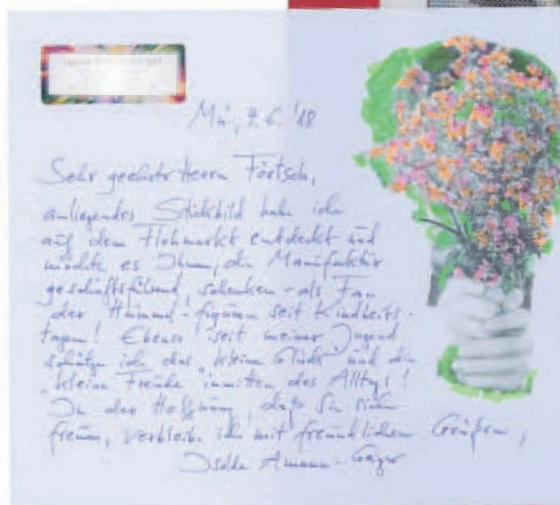 Mü, 4.6.'18
Sehr geehrter Herrn Förtsch,
anliegendes Stickbild habe ich
auf dem Flohmarkt entdeckt und
möchte es Ihnen, die Manufaktur
geschäftsführend, schenken - als Fan
der Hummel-figuren seit Kindheits-
tagen! Ebenso seit meiner Jugend
schätze ich das "kleine Glück" und die
"kleine Freude" inmitten des Alltags!
In der Hoffnung, daß Sie sich
freuen, verbleibe ich mit freundlichen Grüßen,
Amann-